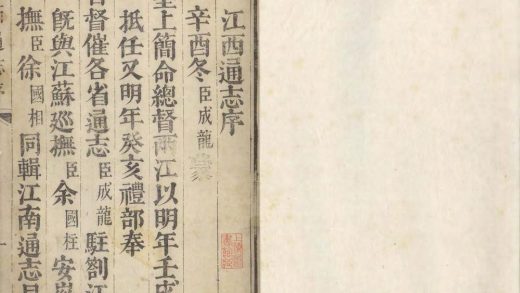 江西通志序
辛酉冬臣成龍蒙
皇上簡命總督兩江以明年壬戌
抵任又明年癸亥禮部奉
督催各省通志臣成龍駐劄江
既與江蘇巡撫臣余國柱安
撫臣徐國相同輯江南通志